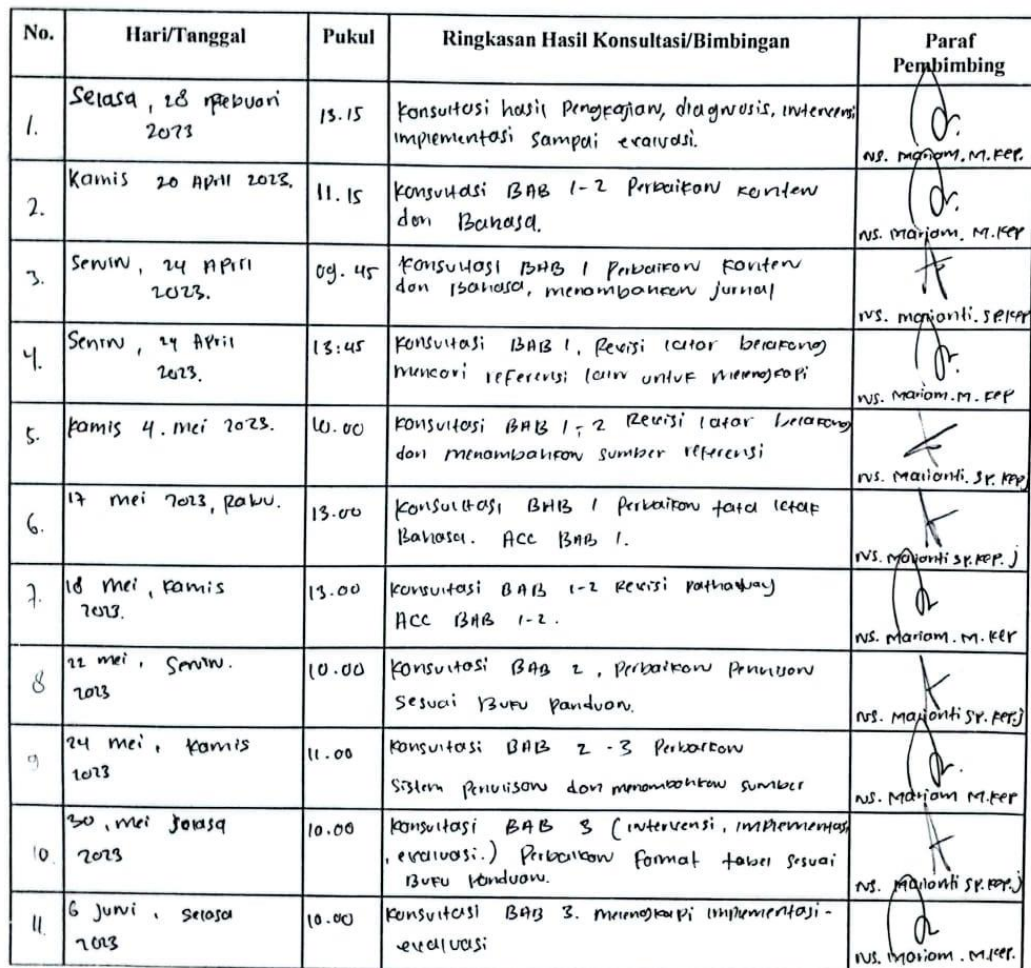 No. Hari/Tanggal Pukul Ringkasan Hasil Konsultasi/Bimbingan Paraf
Pembimbing
1. Selasa, 28 Februari 13.15 Konsultasi hasil Pengkajian, diagnosis, intervensi
2023 implementasi sampai evaluasi.
Ns. Mariam. M.Kep.
2. Kamis 20 April 2023. 11.15 Konsultasi BAB 1-2 Perbaikan konten
dan Bahasa.
Ns. Mariam. M.Kep
3. Senin, 24 April 09.45 Konsultasi BAB 1 Perbaikan konten
2023. dan Bahasa, menambahkan jurnal
Ns. marianti. Sp.kep
4. Senin, 24 April 13:45 Konsultasi BAB 1, Revisi latar belakang
2023. mencari referensi lain untuk melengkapi
Ns. Mariam. M. Kep
5. Kamis 4. mei 2023. 10.00 Konsultasi BAB 1-2 Revisi latar belakang
dan menambahkan sumber referensi
Ns. Marianti. Sp. kep j
6. 17 mei 2023, Rabu. 13.00 Konsultasi BAB 1 Perbaikan tata letak
Bahasa. ACC BAB 1.
Ns. Marianti Sp.kep. j
7. 18 mei, Kamis 13.00 Konsultasi BAB 1-2 Revisi pathway
2023. ACC BAB 1-2.
Ns. Mariam. M. Kep
8 22 mei, Senin. 10.00 Konsultasi BAB 2, Perbaikan Penulisan
2023 Sesuai Buku Panduan.
Ns. Marianti Sp. kep.j
9 24 mei, Kamis 11.00 Konsultasi BAB 2-3 Perbaikan
2023 Sistem Penulisan dan menambahkan sumber
Ns. Mariam M.Kep
10. 30, mei Selasa 10.00 Konsultasi BAB 3 (intervensi, implementasi
2023 , evaluasi.) Perbaikan Format tabel sesuai
Buku Panduan.
Ns. Marianti Sp. kep.j
11. 6 Juni, Selasa 10.00 Konsultasi BAB 3. melengkapi implementasi-
2023 evaluasi
Ns. Mariam. M.Kep.